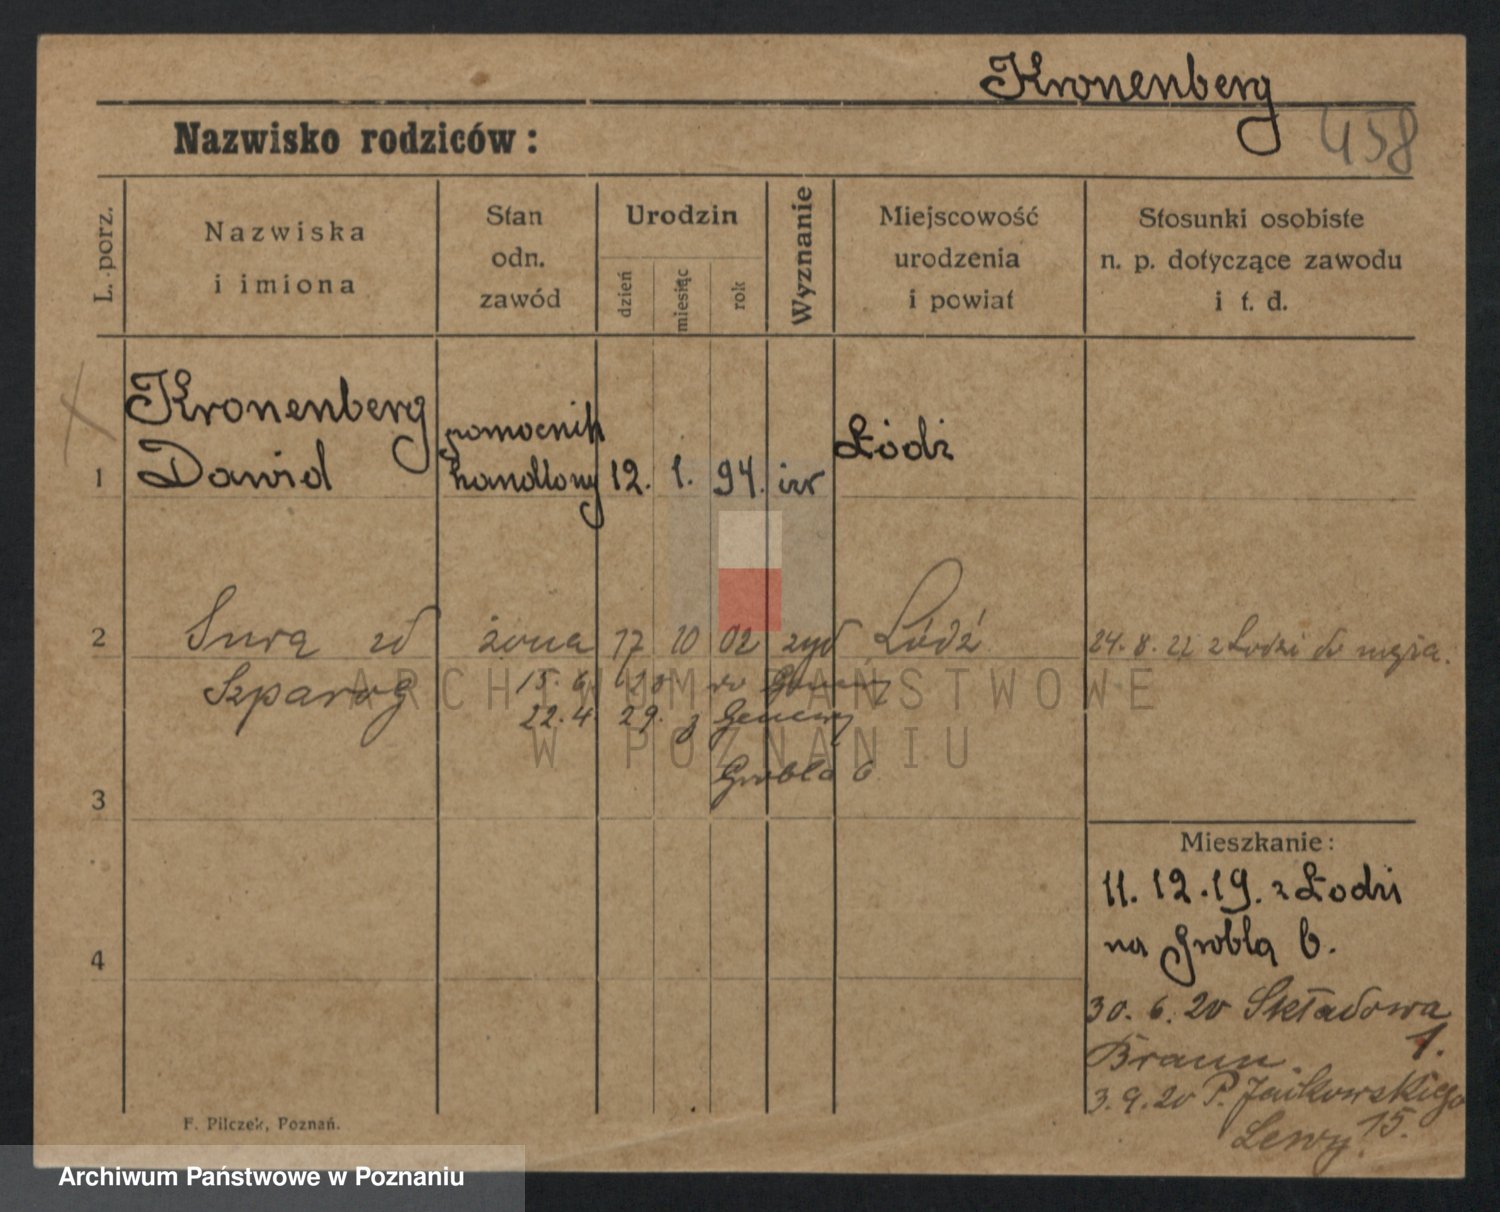 Kronenberg
458
Nazwisko rodziców:
L. porz.
Nazwiska
i imiona
Stan
odn.
zawód
Urodzin
dzień
miesiąc
rok
Wyznanie
Miejscowość
urodzenia
i powiat
Stosunki osobiste
n. p. dotyczące zawodu
i t. d.
1
Kronenberg
Dawid
pomocnik
handlowy
12. 1. 94. izr
Łódź
2
Surą zd
Szparog
żona 17 10 02 żyd Łódź
24. 8. 21 z Łodzi do męża.
15. 6. 28 do Genewy
22. 4. 29. z Genewy
Grobla 6
3
Mieszkanie:
11. 12. 19. z Łodzi
na Grobla 6.
4
30. 6. 20 Składowa
1.
Braun.
3. 9. 20 P. Jackowskiego
15.
Lewy.
F. Pilczek, Poznań.
ARCHIWUM PAŃSTWOWE
W POZNANIU
Archiwum Państwowe w Poznaniu